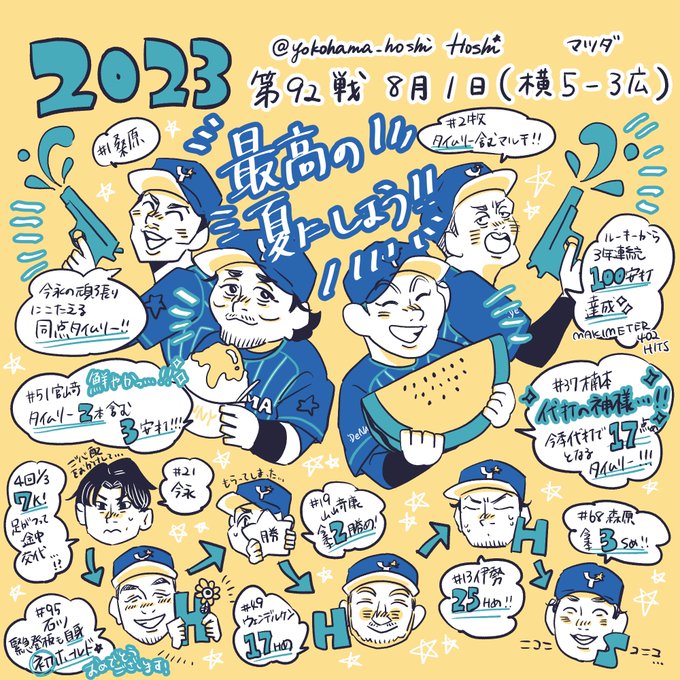 2023
@yokohama_hoshi Hoshi
マツダ
第92戦 8月1日(横5-3広)
#1桑原
最高の
夏にしよう!!
#2牧
タイムリー含むマルチ!!
今永の頑張り
にこたえる
同点タイムリー!!
ルーキーから
3年連続
100安打
達成
MAKIMETER
402
HITS
#51宮﨑 鮮やかっ…!!
タイムリー2本含む
3安打!!!
#37楠本
代打の神様…!!
今季代打で17点目
となる
タイムリー!!!
DeNA
4回1/3
7K!
足がつって
途中
交代…!?
ご心配
おかけして…
#21
今永
もらってしまった…
勝
#19
山﨑康
今季2勝め!
#95
石川
緊急登板も自身
初ホールド
おめでとう
ございます!
H
#49
ウェンデルケン
17Hめ
H
#13伊勢
25Hめ!!
H
#68森原
今季3Sめ!!
S
ニコニコ
ニコニコ